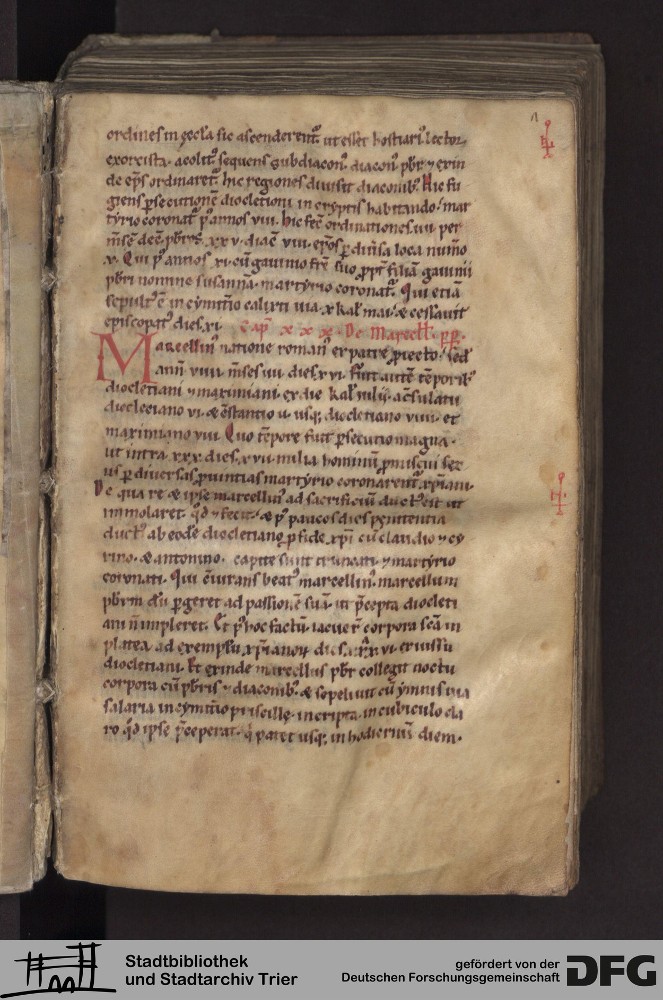 ordines in ęccl̄a sic ascenderent᷑. ut esset hostiari᷒. lector.
exorcista. acolit᷒. sequens. subdiacon᷒. diacon᷒. pbr̄ ⁊ exin
de ep̄s ordinaret᷑. hic regiones diuisit diaconib᷒. Hic fu
giens ꝑsecutionē diocletiani in cryptis habitando. mar
tyrio coronat᷒ p᷒ annos viii. hic fec̄ ordinationes.
m̄se decē. pbr̄os. xxv. diac̄ viii. ep̄os ꝑ diu̅sa loca num̅o
v. Qui p᷒ annos xi. cū gauinio fr̄e suo ꝓpt᷑ filiā gauinii
pbr̄i nomine susannā. martyrio coronat᷒. Qui etiā
sepult᷒ ē in cymit̅io calixti uia. x kał mai. & cessauit
episcopat᷒ dies. xi. Cap̄ xxx. De Marcell̄. pp̄.
Marcellin᷒ natione roman᷒ ex patre ꝓiecto. sed
ann̄ viiii. m̄ses iiii. dies. xvi. Fuit autē tēporib᷒
diocletiani ⁊ maximiani. ex die kał iulii. a c̄sulatu
diocleciano vi. & c̄stantio ii. usq; diocletiano viiii. et
maximiano viii. Quo tēpore fuit ꝑsecutio magna.
ut intra xxx. dies. xvii. milia hominū ꝓmiscui sex
us ꝑ diuersas ꝓuintias martyrio coronarent᷑. xp̄iani.
De qua re & ipse marcellin᷒ ad sacrificiū duct᷒ est ut
immolaret. qd̄ ⁊ fecit. & p᷒ paucos dies pęnitentia
duct᷒ ab eodē diocletiano ꝓ fide xp̄i cū claudio ⁊ cy
rino. & antonino. capite sunt truncati. ⁊ martyrio
coronati. Qui c̄iurans beat᷒ marcellin᷒. marcellum
pbr̄m dū ꝑgeret ad passionē suā. ut p̄cepta diocleti
ani n̄ impleret. Et p᷒ hoc factū. iacuer̄ corpora sc̄a in
platea. ad exemplū xp̄ianoꝝ dies. xxvi. ex iussu
diocletiani. Et exinde marcellus pbr̄ collegit noctu
corpora cū pbr̄is ⁊ diaconib᷒. & sepeliuit cū ymnis uia
salaria in cymit̅io priscillę. in cripta. in cubiculo cla
ro qd̄ ipse p̄ceperat. q̄ patet usq; in hodiernū diem.
Stadtbibliothek
und Stadtarchiv Trier
gefördert von der
Deutschen Forschungsgemeinschaft
DFG